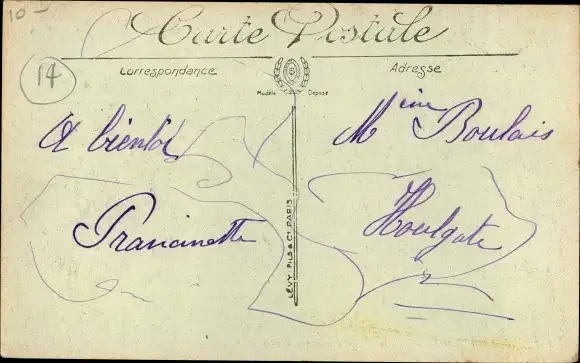 10
Carte Postale
14
Correspondance
Adresse
Modèle Déposé
A bientôt
Francinette
LÉVY, FILS & Cie PARIS
Mème Boulais
Houlgate